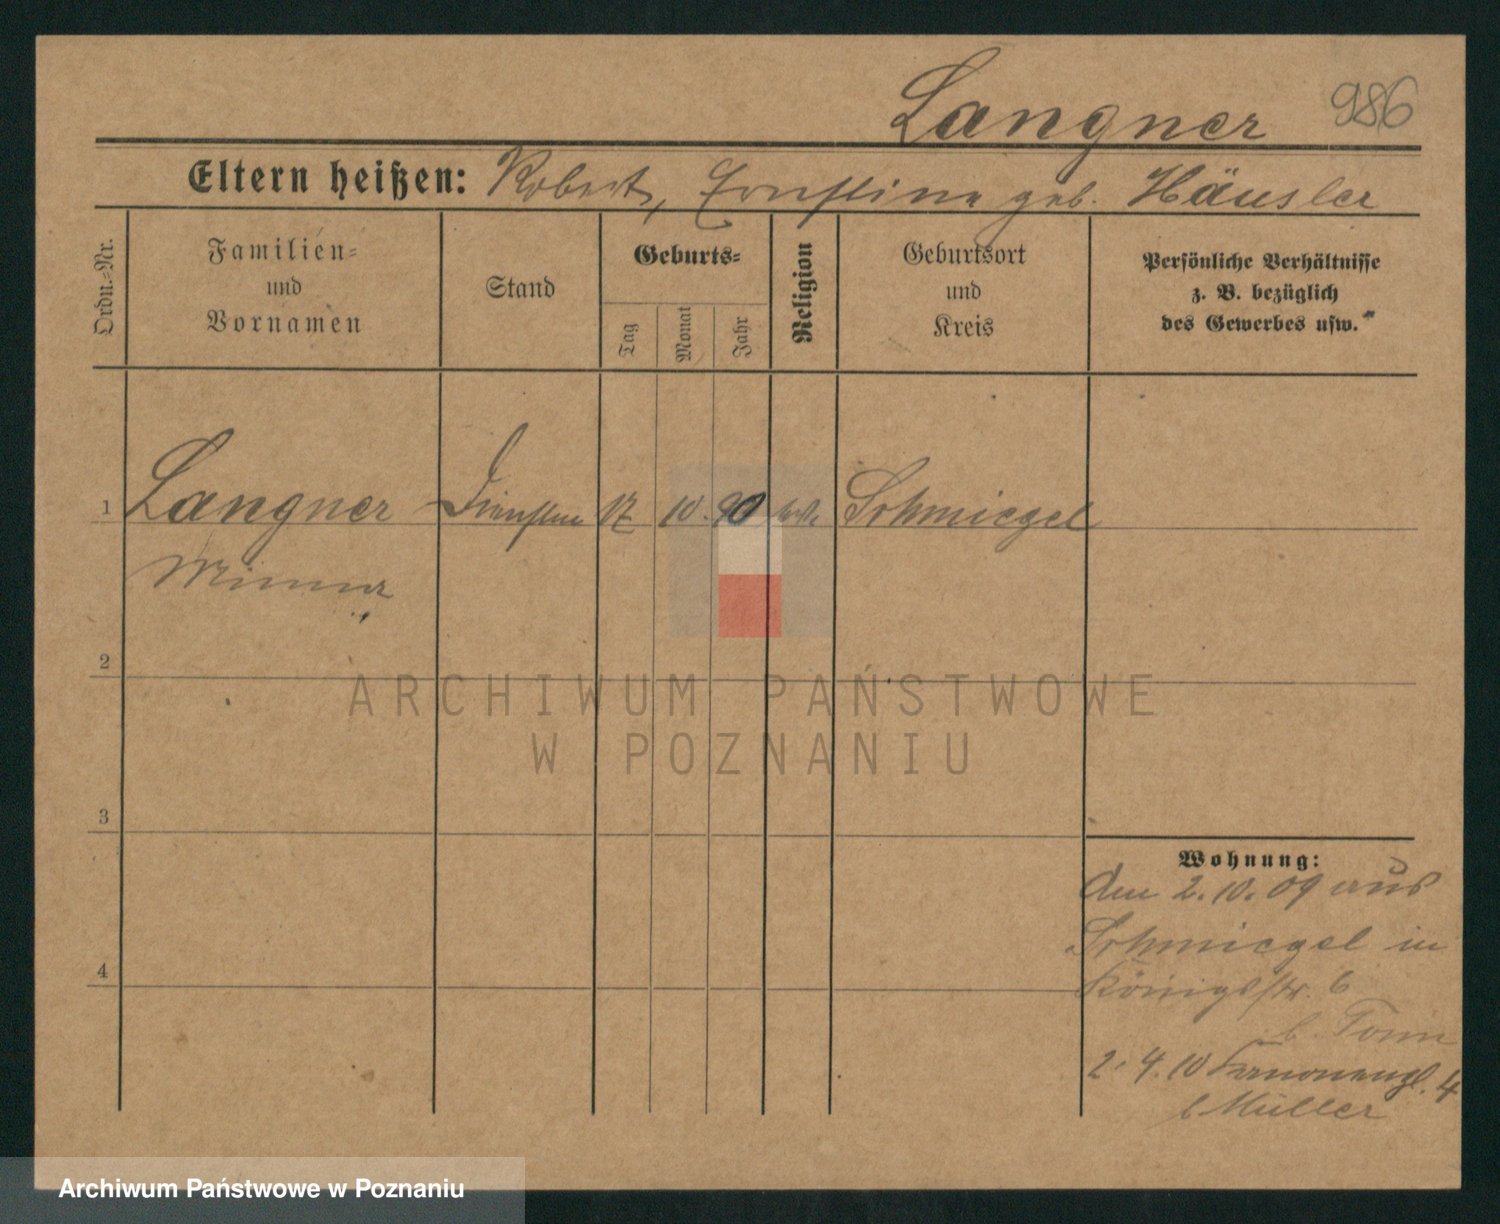 Langner 986
Eltern heißen: Robert, Ernstine geb. Häusler
Ordn.-Nr.
Familien-
und
Vornamen
Stand
Geburts-
Tag
Monat
Jahr
Religion
Geburtsort
und
Kreis
Persönliche Verhältnisse
z. B. bezüglich
des Gewerbes usw.
1 Langner 17 10. 90 Schmiegel
Minna
2
3
4
Wohnung:
Am 2.10.09 aus
Schmiegel in
Königsstr. 6
b.
2. 4. 10 Kanonenpl. 4
b Müller
ARCHIWUM PAŃSTWOWE
W POZNANIU
Archiwum Państwowe w Poznaniu